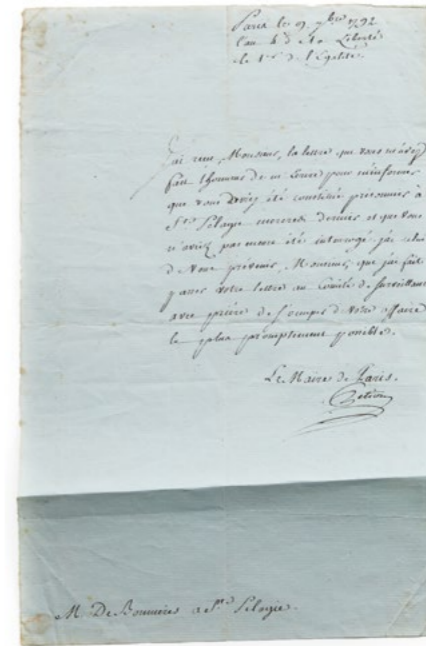 Paris le 9 7bre 1792
l'an 4e de la Liberté
le 1er de l'Egalité.
J'ai reçu, Monsieur, la lettre que vous m'avez
fait l'honneur de m'écrire pour m'informer
que vous aviez été constitué prisonnier à
Ste Pelagie mercredi dernier et que vous
n'aviez pas encore été interrogé. j'ai
de vous prévenir, Monsieur, que j'ai fait
passer votre lettre au Comité de surveillance
avec prière de s'occuper de votre affaire
le plus promptement possible.
Le Maire de Paris.
Petion
M. De Bonnieres a Ste Pelagie.